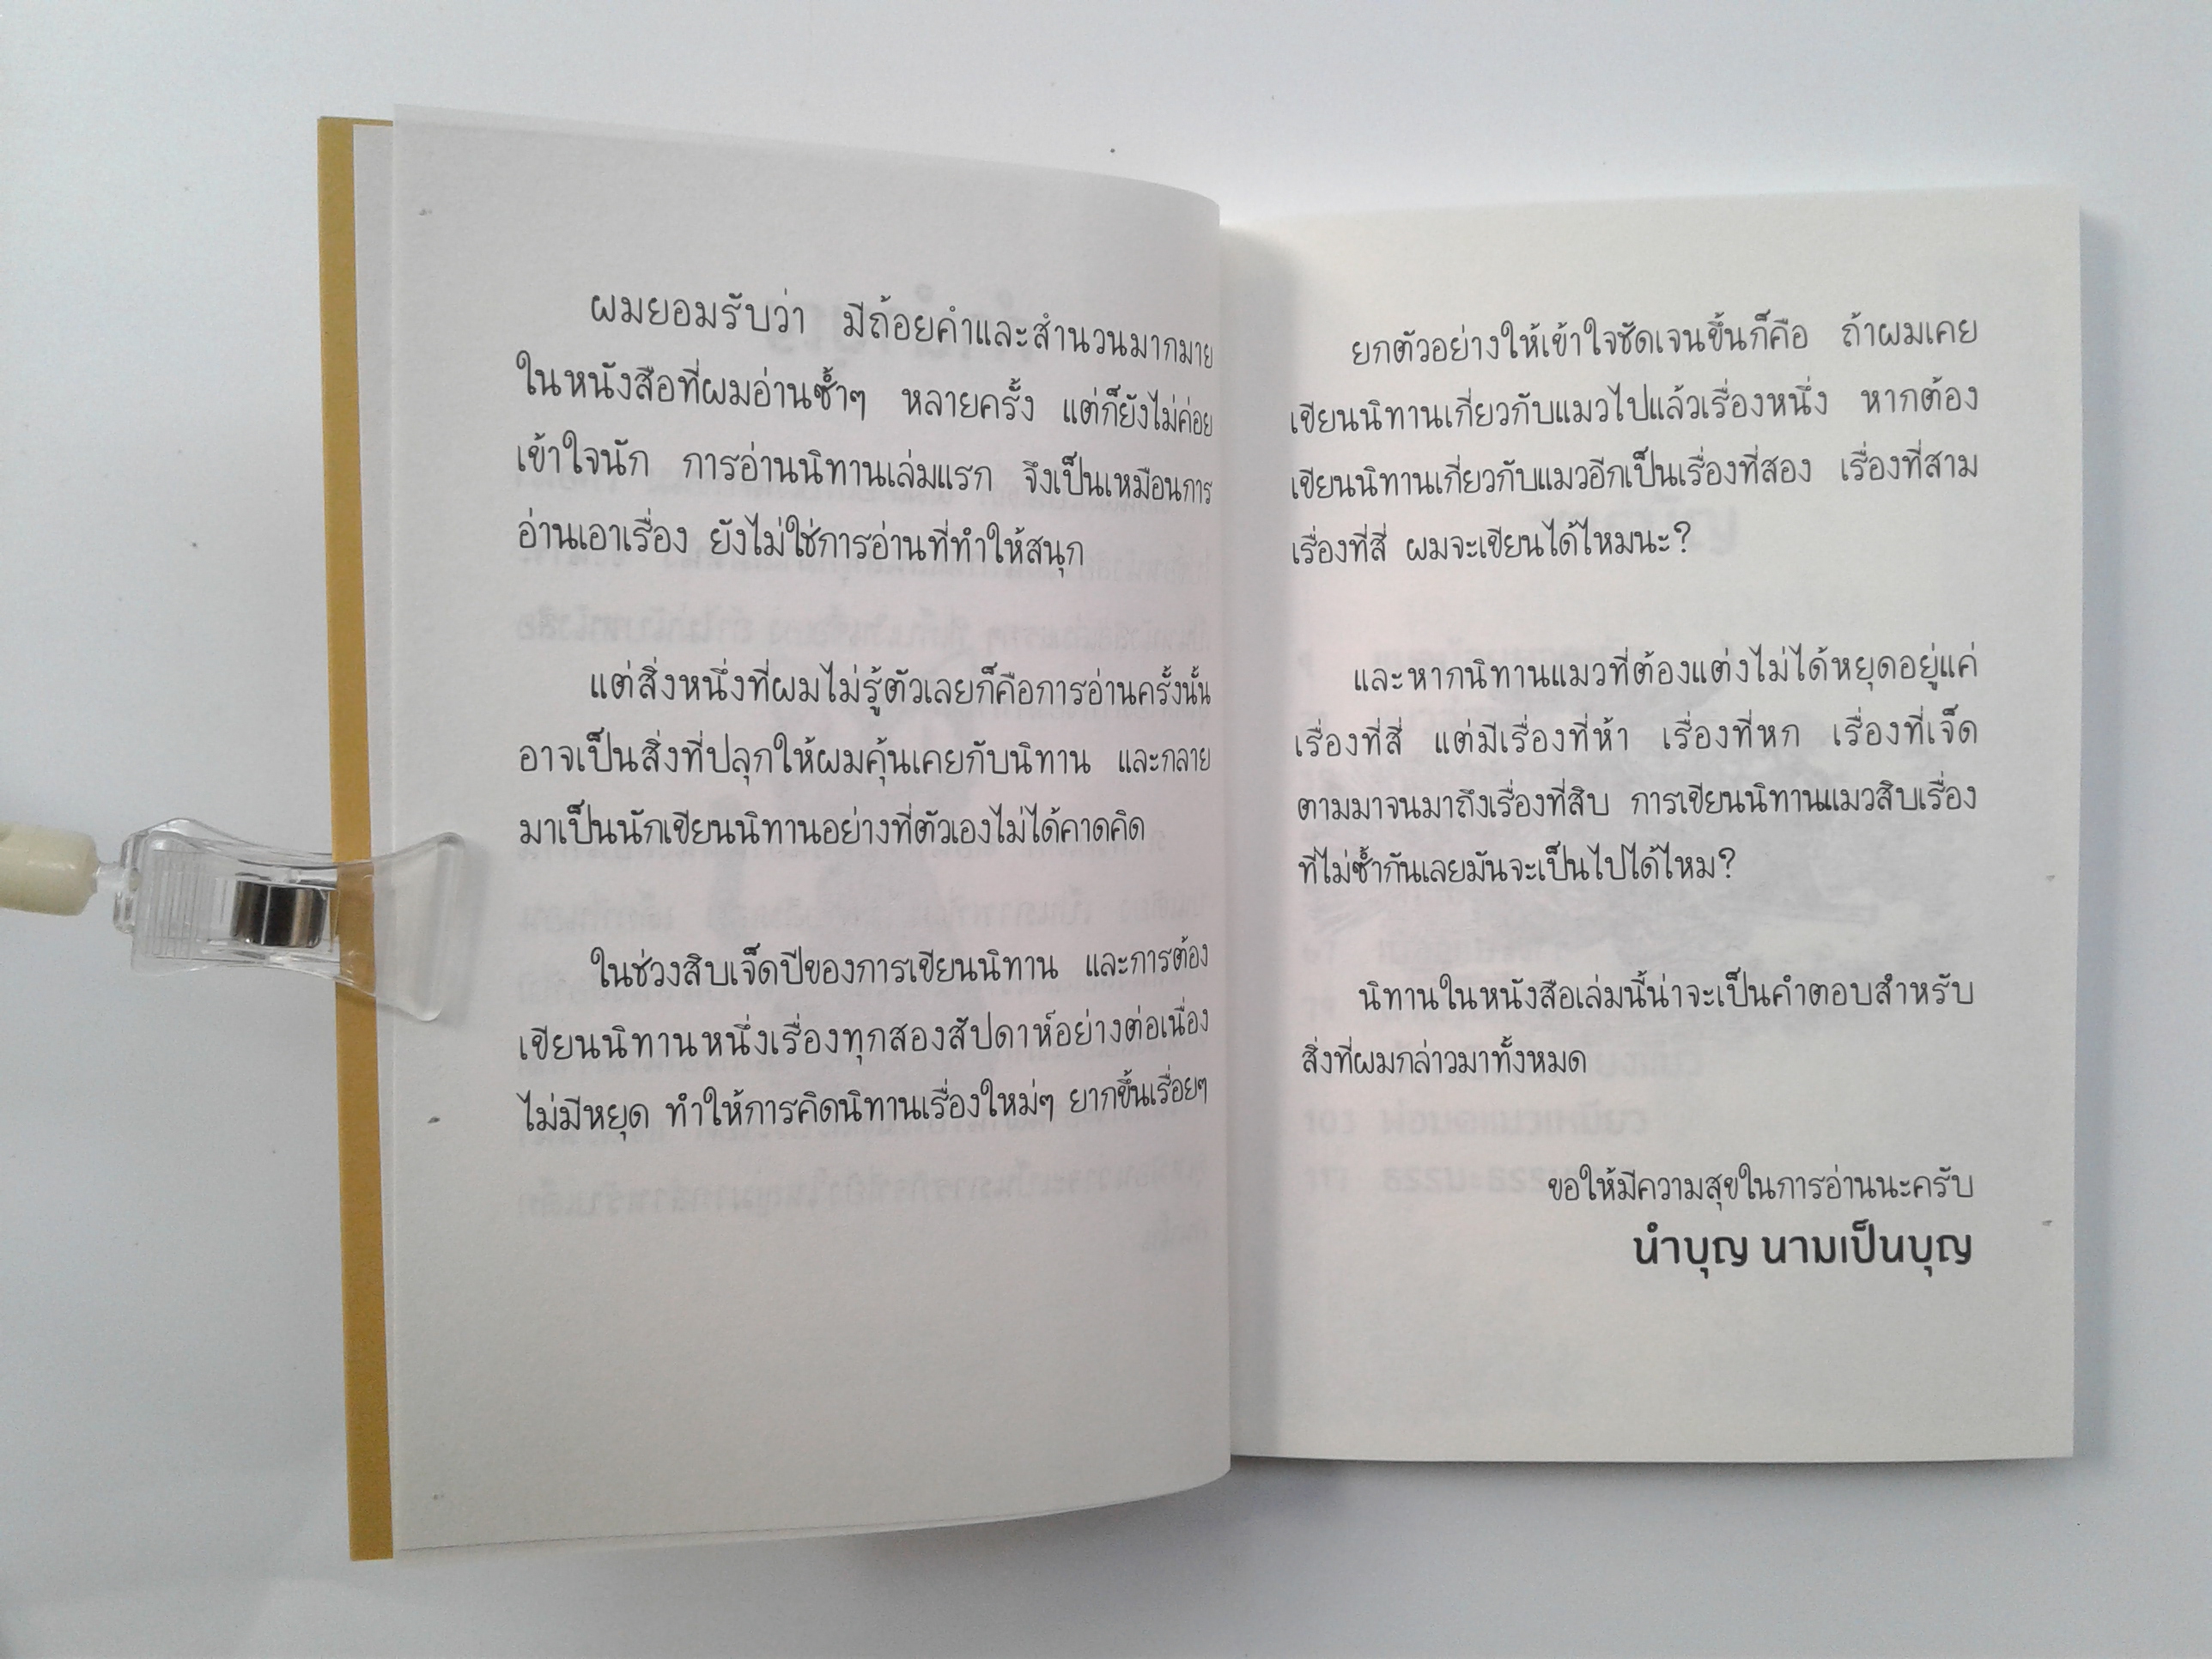 ผมยอมรับว่า มีถ้อยคำและสำนวนมากมาย
ในหนังสือที่ผมอ่านซ้ำๆ หลายครั้ง แต่ก็ยังไม่ค่อย
เข้าใจนัก การอ่านนิทานเล่มแรก จึงเป็นเหมือนการ
อ่านเอาเรื่อง ยังไม่ใช่การอ่านที่ทำให้สนุก
แต่สิ่งหนึ่งที่ผมไม่รู้ตัวเลยก็คือการอ่านครั้งนั้น
อาจเป็นสิ่งที่ปลุกให้ผมคุ้นเคยกับนิทาน และกลาย
มาเป็นนักเขียนนิทานอย่างที่ตัวเองไม่ได้คาดคิด
ในช่วงสิบเจ็ดปีของการเขียนนิทาน และการต้อง
เขียนนิทานหนึ่งเรื่องทุกสองสัปดาห์อย่างต่อเนื่อง
ไม่มีหยุด ทำให้การคิดนิทานเรื่องใหม่ๆ ยากขึ้นเรื่อยๆ
ยกตัวอย่างให้เข้าใจชัดเจนขึ้นก็คือ ถ้าผมเคย
เขียนนิทานเกี่ยวกับแมวไปแล้วเรื่องหนึ่ง หากต้อง
เขียนนิทานเกี่ยวกับแมวอีกเป็นเรื่องที่สอง เรื่องที่สาม
เรื่องที่สี่ ผมจะเขียนได้ไหมนะ?
และหากนิทานแมวที่ต้องแต่งไม่ได้หยุดอยู่แค่
เรื่องที่สี่ แต่มีเรื่องที่ห้า เรื่องที่หก เรื่องที่เจ็ด
ตามมาจนมาถึงเรื่องที่สิบ การเขียนนิทานแมวสิบเรื่อง
ที่ไม่ซ้ำกันเลยมันจะเป็นไปได้ไหม?
นิทานในหนังสือเล่มนี้น่าจะเป็นคำตอบสำหรับ
สิ่งที่ผมกล่าวมาทั้งหมด
ขอให้มีความสุขในการอ่านนะครับ
นำบุญ นามเป็นบุญ